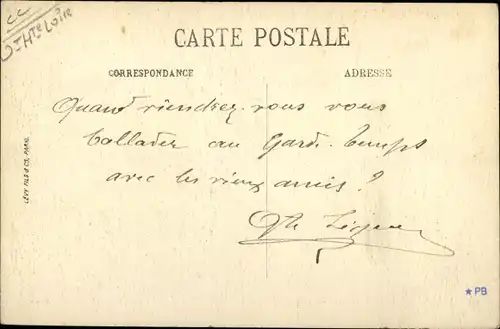 CC
Dt Hte Loire
CARTE POSTALE
CORRESPONDANCE
ADRESSE
Quand viendrez-vous vous
ballader au Gard-temps
avec les vieux amis ?
LÉVY FILS & CIE, PARIS
★PB